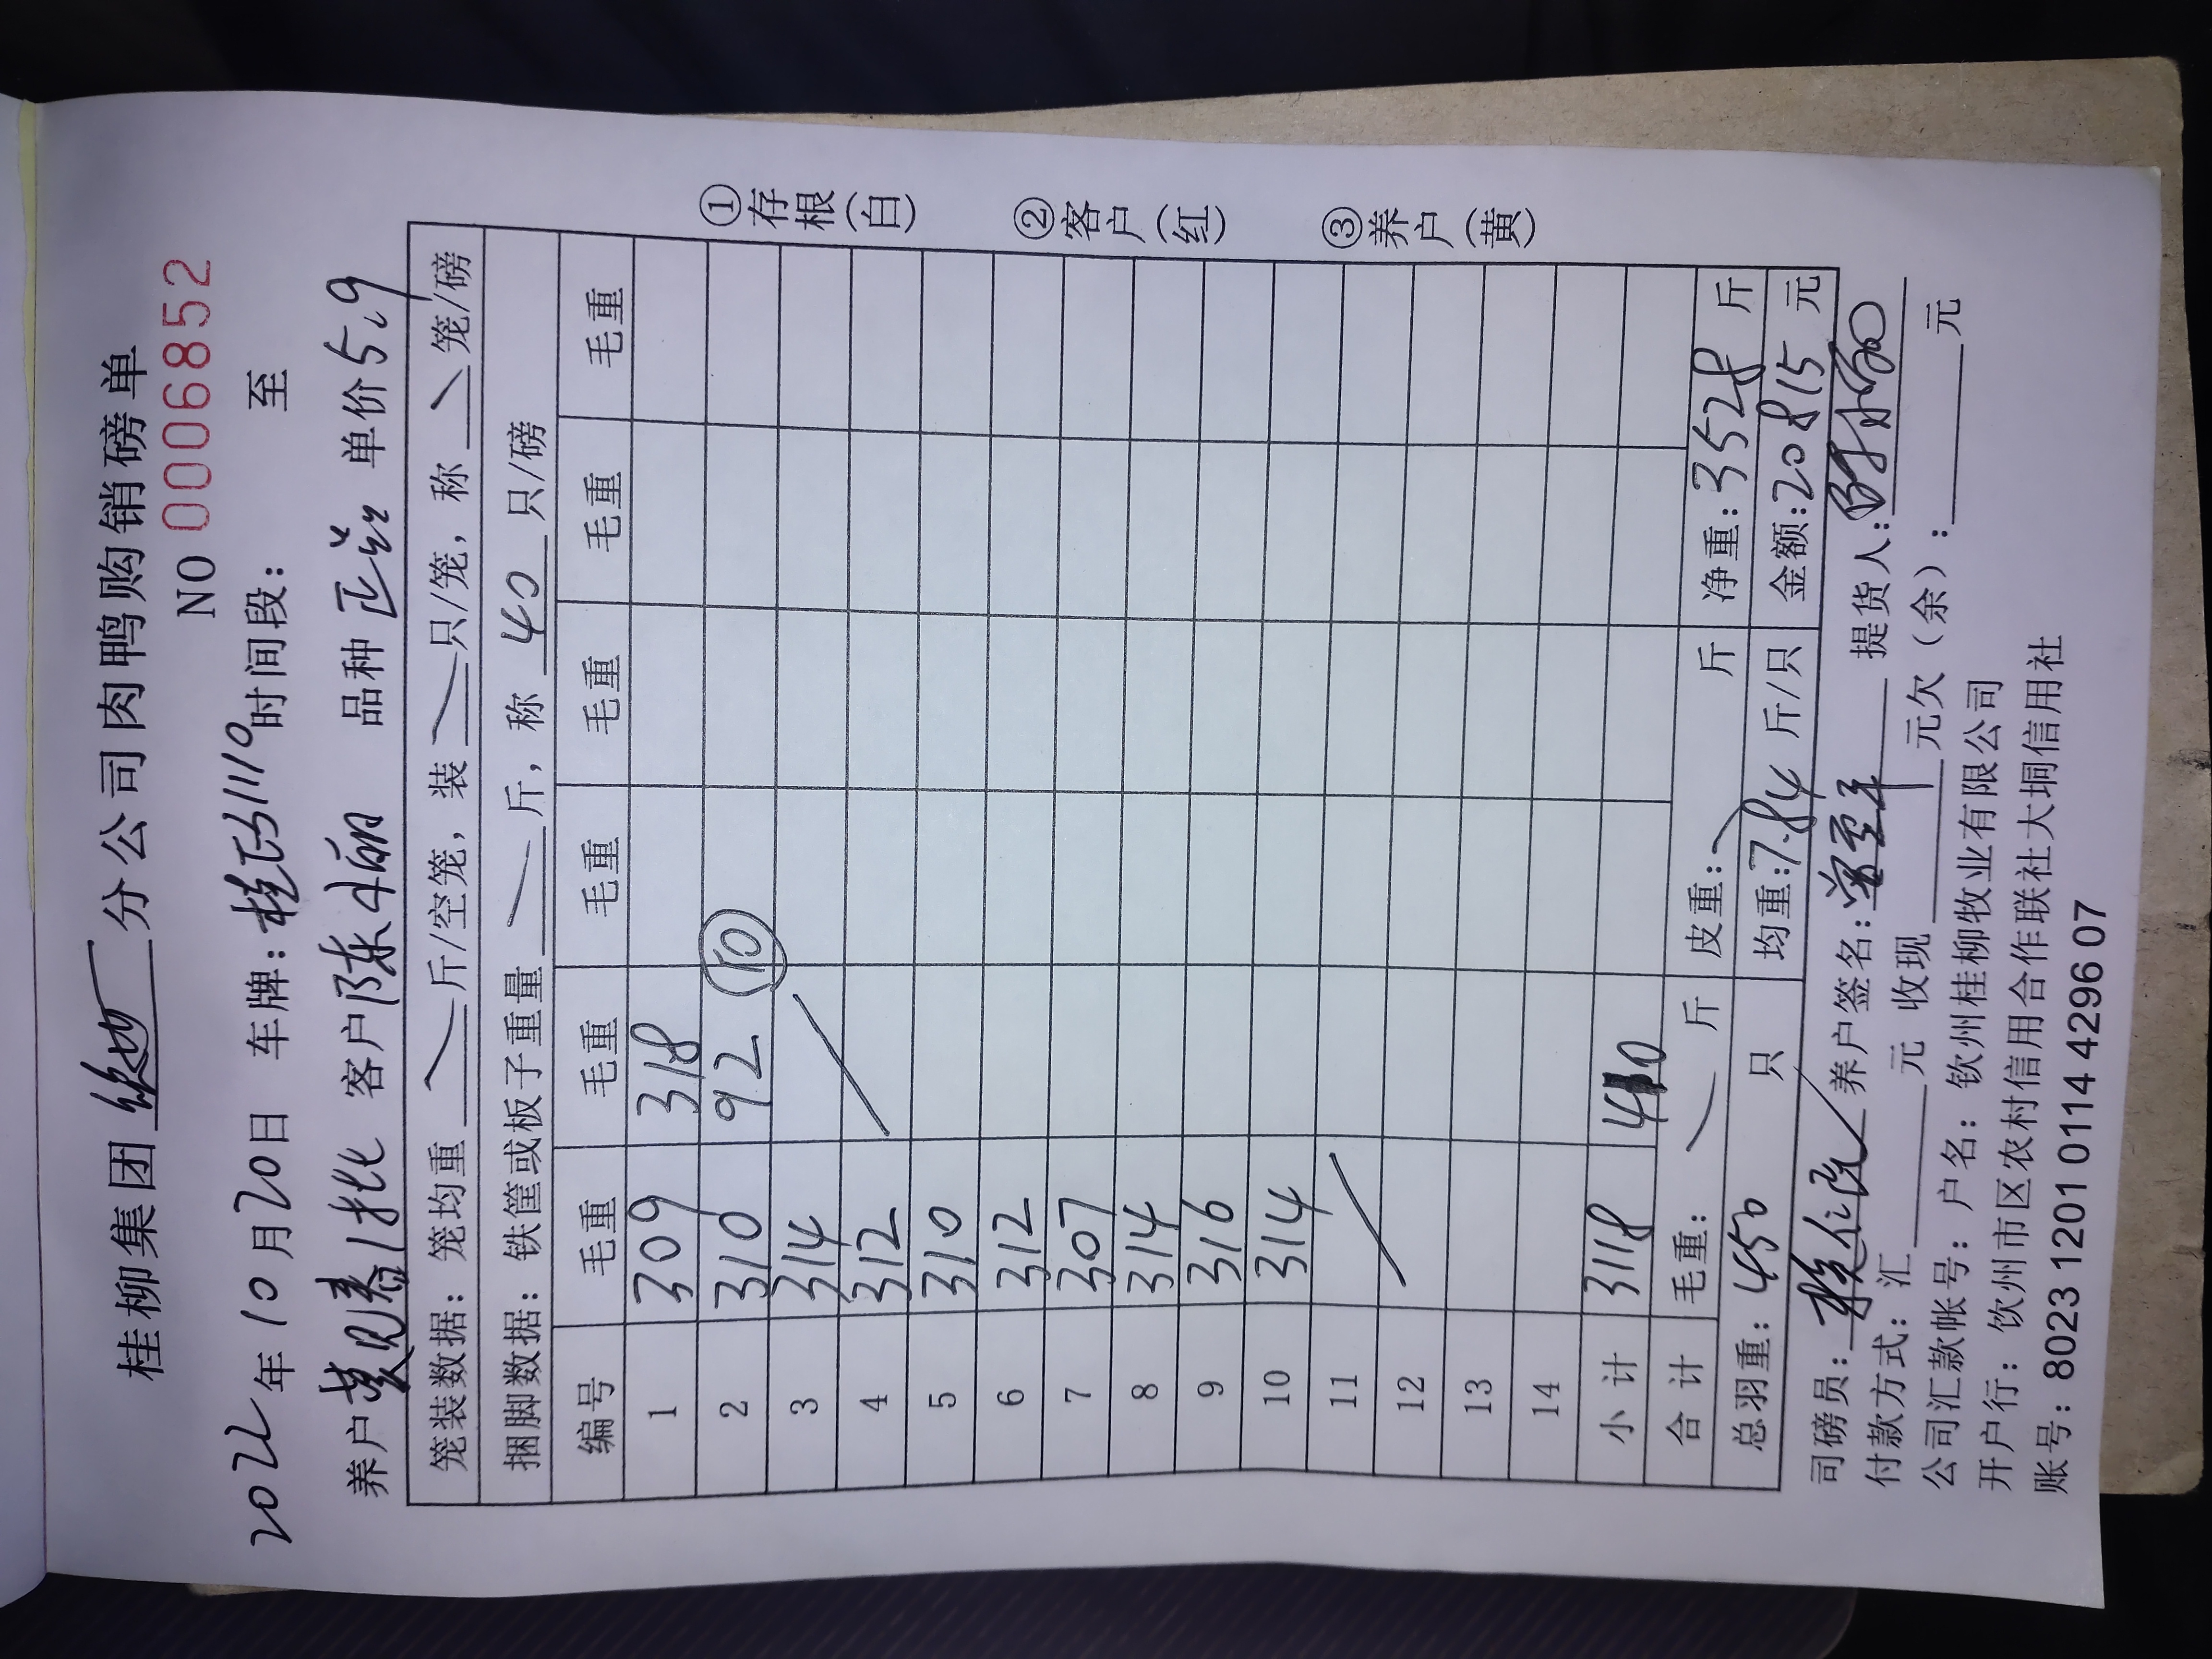 桂柳集团 分公司肉鸭购销磅单
NO 0006852
2022年10月20日 车牌:桂 31110 时间段: 至
养户 黄 春1批 客户 陈小丽 品种 正 单价 5.9
笼装数据: 笼均重 斤/空笼, 装 只/笼, 称 笼/磅
捆脚数据: 铁筐或板子重量 斤, 称 40 只/磅
编号 毛重 毛重 毛重 毛重 毛重 毛重
1 309 318
2 310 92 ⑩
3 314
4 312
5 310
6 312
7 307
8 314
9 316
10 314
11
12
13
14
小计 3118 410
合计 毛重: 斤 皮重: 斤 净重: 3528 斤
总羽重: 450 只 均重: 7.84 斤/只 金额: 20815 元
司磅员: 养户签名: 提货人:
付款方式: 汇 元 收现 元欠(余): 元
公司汇款帐号: 户名: 钦州桂柳牧业有限公司
开户行: 钦州市区农村信用合作联社大垌信用社
账号: 8023 1201 0114 4296 07
①存根(白)
②客户(红)
③养户(黄)